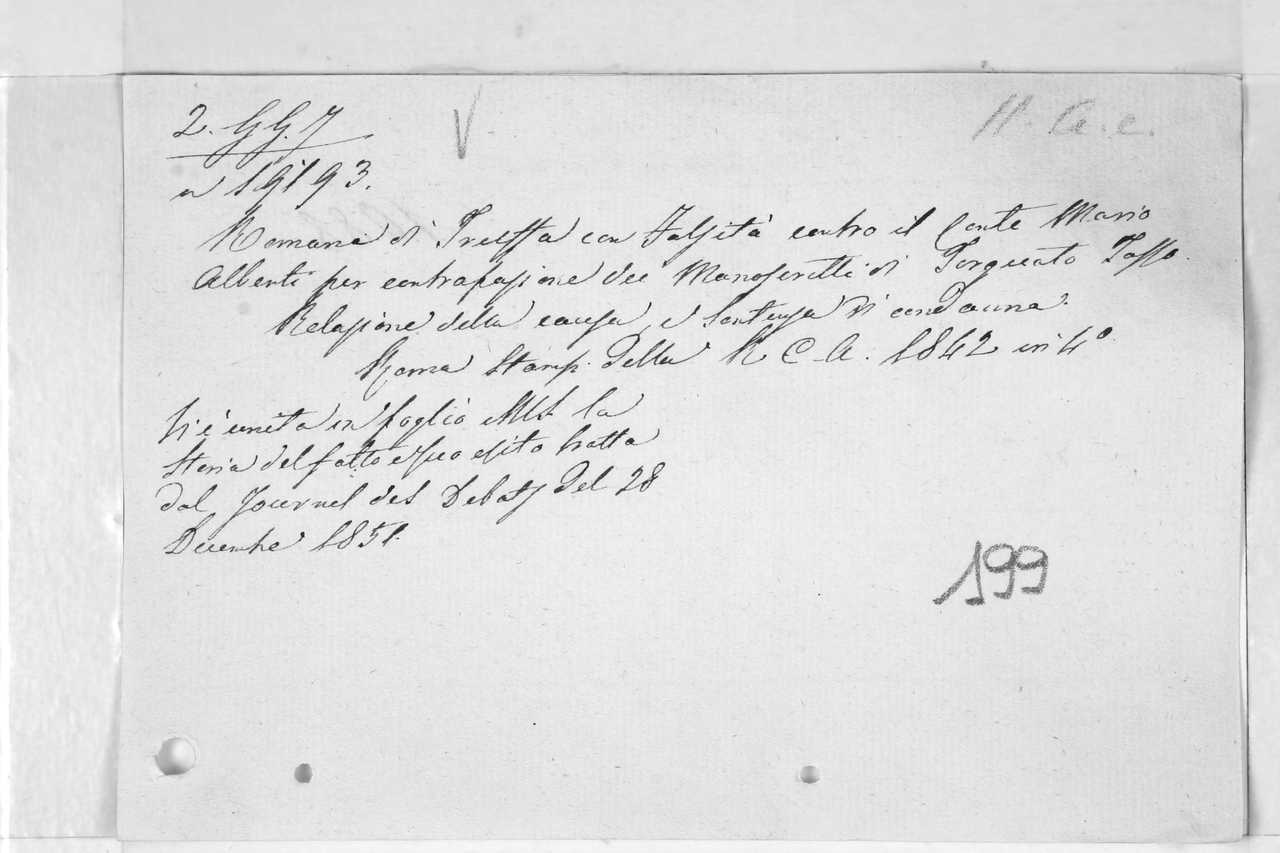 2. GG. 7
n 19193.
H. A. c.
Romana di Truffa con Falsità contro il Conte Mario
Alberti per contrafazione dei Manoscritti di Torquato Tasso.
Relazione della causa, e Sentenza di condanna.
Roma Stamp. della R C A. 1842 in 4°
Vi è unita in foglio MS. la
Storia del fatto e suo esito tratta
dal Journal des Debats del 28
Decembre 1851.
199